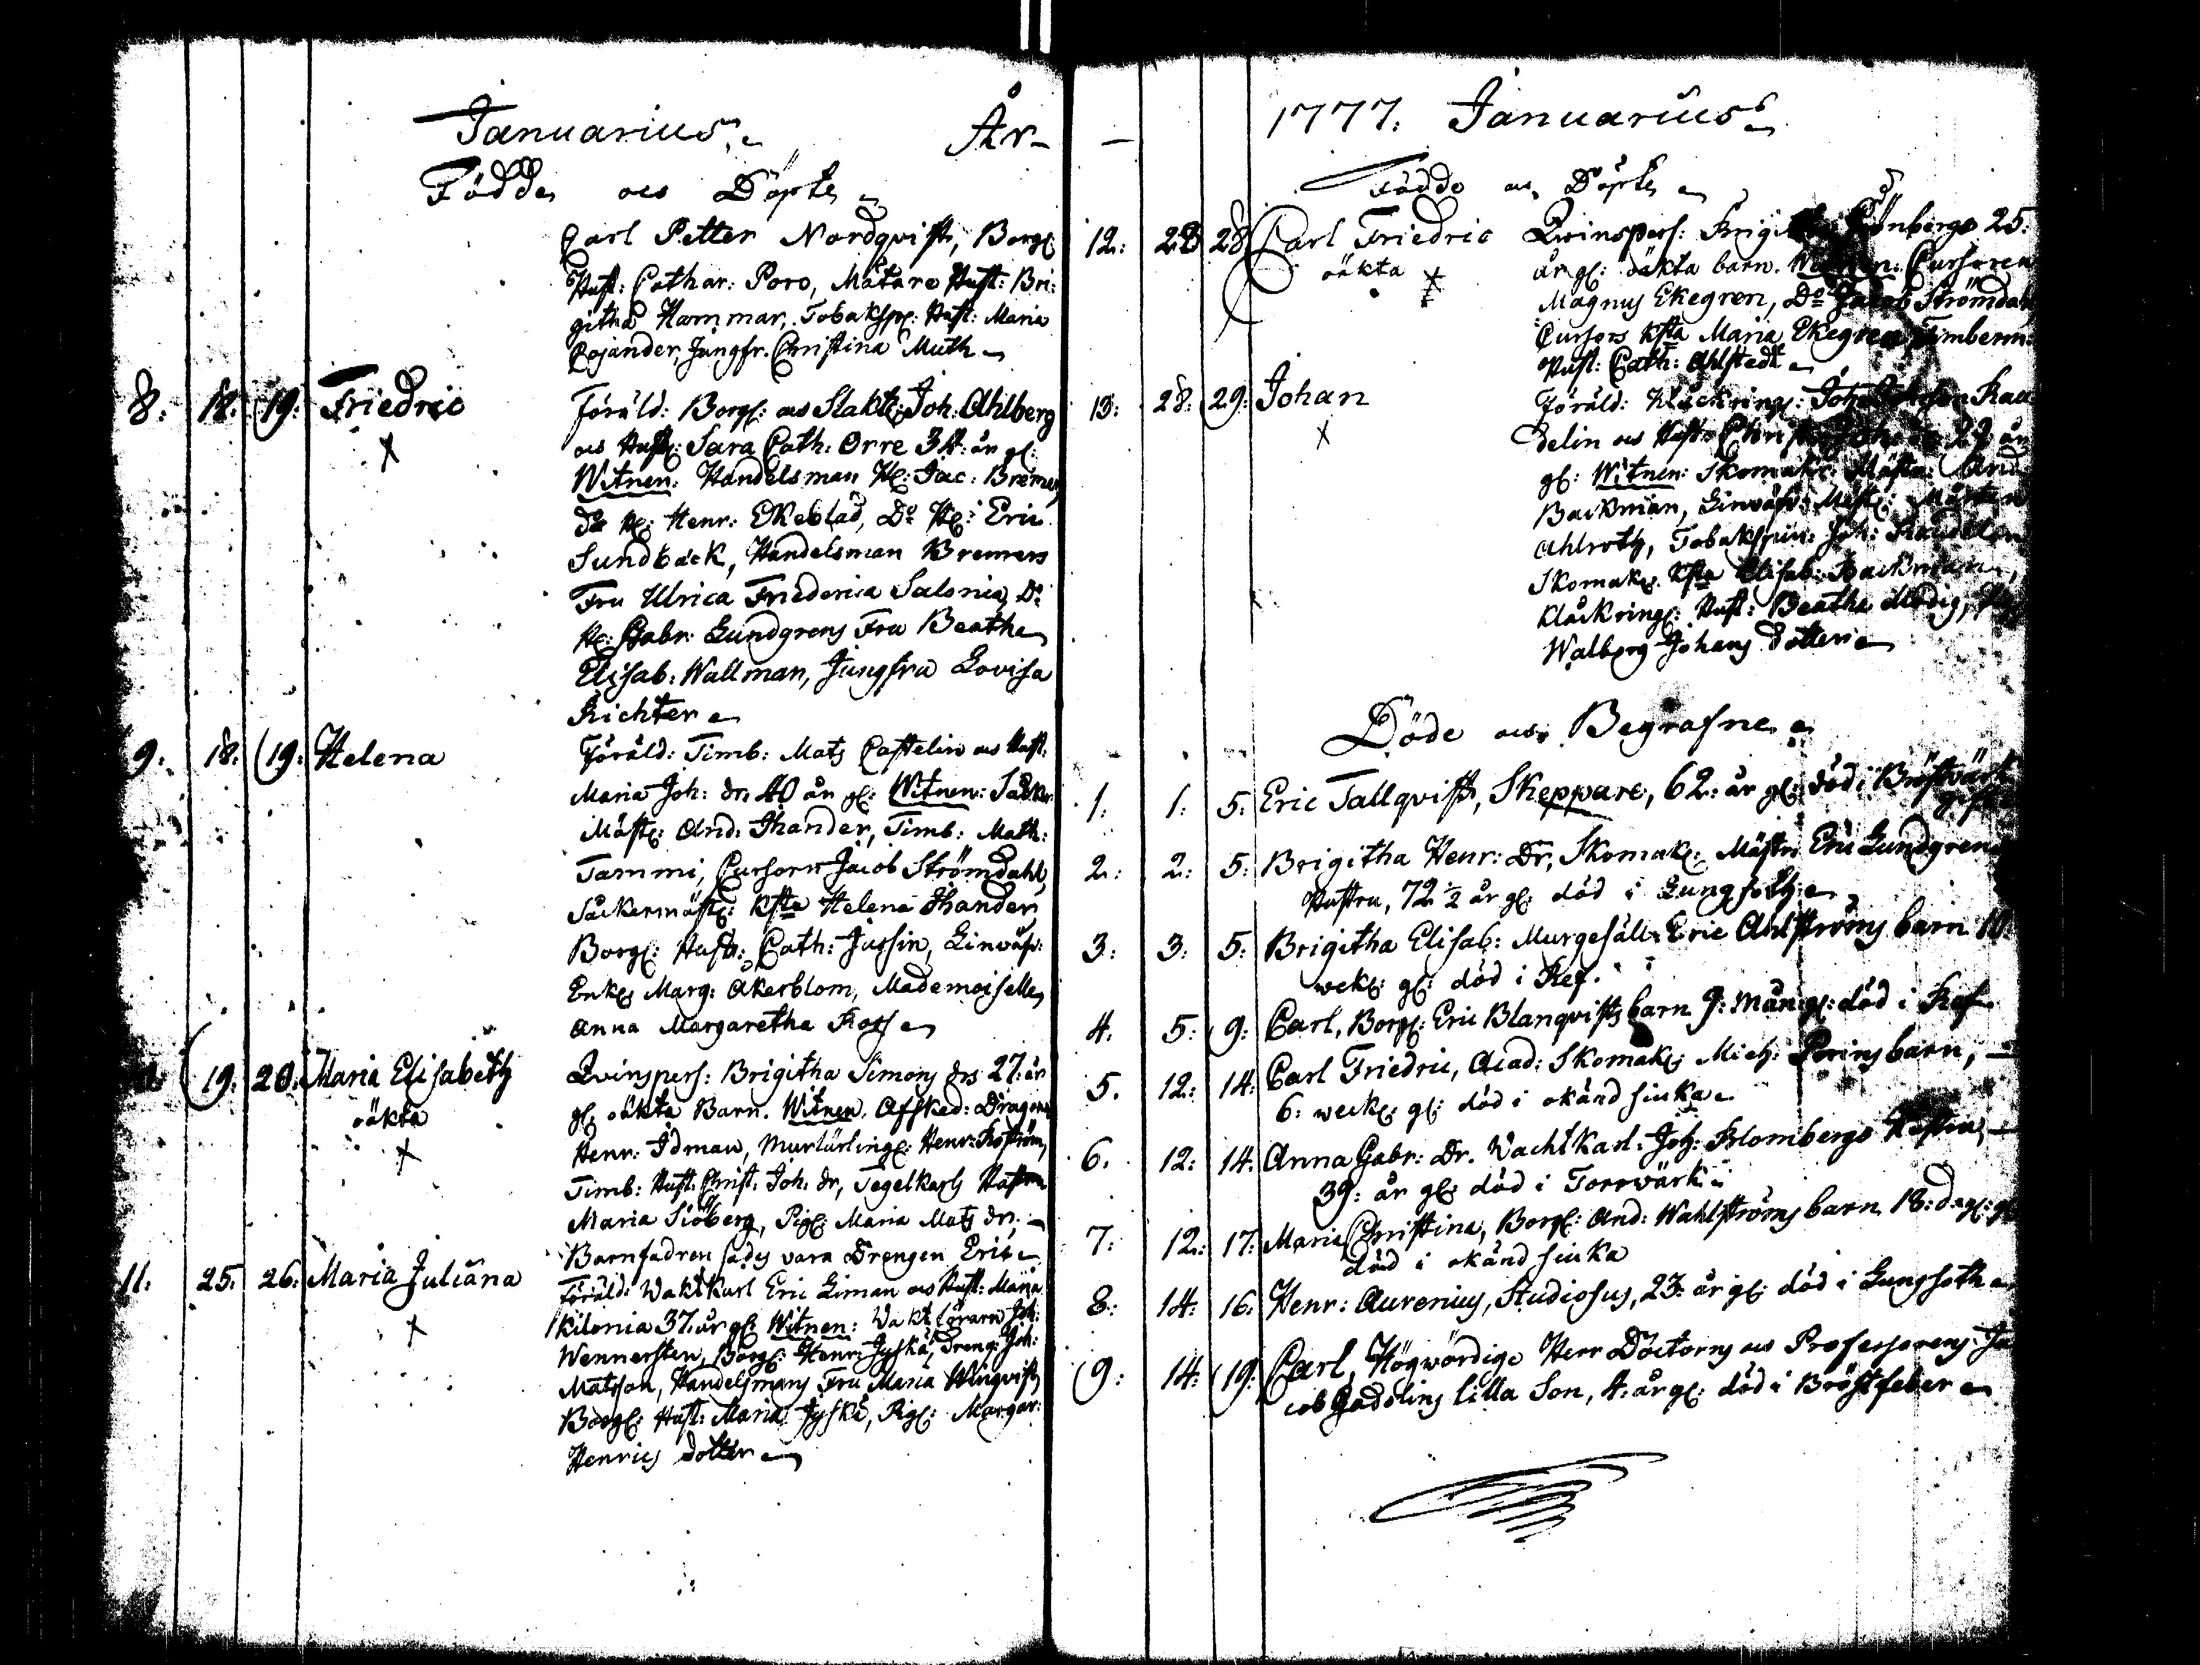 Januarius. År
Födde och Döpte
Carl Petter Nordqvist, Borg:
Hust: Cathar: Poro, Mätare Hust: Bri:
githa Hammar, Tobakspr: Hust: Maria
Cojander, Jungfr. Christina Muth
8: 18: 19: Friedric Föräld: Borg: och Slakt: Joh: Ahlberg
X och Hust: Sara Cath: Orre 34: år gl:
Witnen: Handelsman H: Jac: Bremer
Do H: Henr: Ekeblad, Do H: Eric
Sundbäck, Handelsman Bremers
Fru Ulrica Friederica Salonia, Do
H: Gabr: Lundgrens Fru Beatha
Elisab: Wallman, Jungfru Lovisa
Richter
9: 18: 19: Helena Föräld: Timb: Mats Castelin och Hust:
Maria Joh: dr. 40 år gl: Witnen: Såcker
Mäst: And: Thander, Timb: Math:
Tammi, Cursorn Jacob Strömdahl,
Såckermäst: Ksta Helena Thander
Borg: Hustr: Cath: Jussin, Linwäf:
Enk: Marg: Åkerblom, Mademoiselle
Anna Margaretha Ross
19: 20: Maria Elisabeth Qvinspers: Brigitha Simons dr 27: år
oäkta gl: oäkta Barn. Witnen. Afsked: Dragon
X Henr: Idman, Murlärling: Henr:
Timb: Hust: Christ: Joh: dr, Tegelkarls Hustru
Maria Siöberg, Pig: Maria Mats dr,
Barnfadren sades vara Drengen Eric
11: 25: 26: Maria Juliana Föräld: Waktkarl Eric Liman och Hust: Maria
X Kilonia 37. år gl: Witnen: Wakt Joh:
Wennersten, Borg: Henr: Jyskä, Dreng: Joh:
Matsson, Handelsmans Fru Maria Winqvist,
Borg: Hust: Maria Jyskä, Pig: Margar:
Henrics dotter
1777. Januarius
Födde och Döpte
12: 28 28 Carl Friedric Qvinspers: Brigitha 25:
oäkta år gl: oäkta barn. Witnen: Cursoren
X Magnus Ekegren, Do Jacob Strömdahl
Cursors Ksta Maria Ekegren Timberm:
Hust: Cath: Ahlstedt
13: 28: 29: Johan Föräld: Klåckring: Joh: Rau
X delin och Hustr: 29 år
gl: Witnen: Skomak: Mäst: And
Backman, Linwäf: Mäst: Mårten
Ahlroth, Tobakspin: Joh: Raudelin
Skomak: Ksta Elisab: Backman,
Klåckring: Hust: Beatha Modig,
Walborg Johans dotter
Döde och Begrafne
1. 1. 5: Eric Tallqvist, Skeppare, 62: år gl: död i Bröstvärk
gift
2: 2: 5: Brigitha Henr: Dr, Skomak: Mästr: Eric Lundgrens
Hustru, 72 1/2 år gl: död i Lungsoth
3: 3: 5: Brigitha Elisab: Murgesäll: Eric Ahlströms barn 10
weck: gl: död i Ref.
4. 5: 9: Carl, Borg: Eric Blanqvists barn 9: Mån: gl: död i Ref
5. 12: 14: Carl Friedric, Acad: Skomak: Mich: Perins barn,
6: weck: gl: död i okänd siuka
6. 12: 14: Anna Gabr: Dr. Wachtkarl: Joh: Blombergs Hustru,
39: år gl: död i Torrvärk
7: 12: 17: Maria Christina, Borg: And: Wahlströms barn 18: dag: gl
död i okänd siuka
8: 14: 16: Henr: Aurenius, Studiosus, 23: år gl: död i Lungsoth
9: 14: 19: Carl, Högwördige Herr Doctorns och Professorens Ja
cob Gadolins lilla Son, 4: år gl: död i Bröstfeber